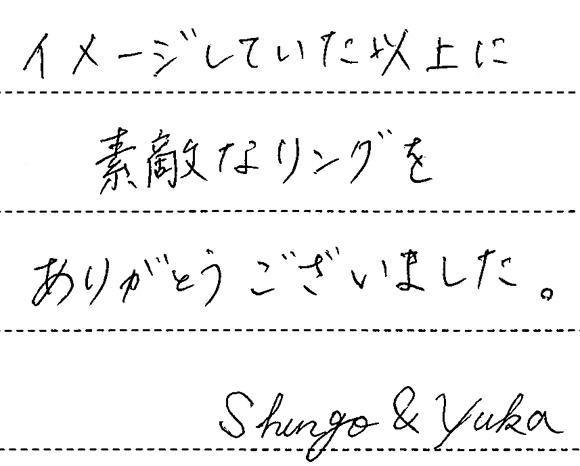 イメージしていた以上に
素敵なリングを
ありがとうございました。
Shingo & Yuka